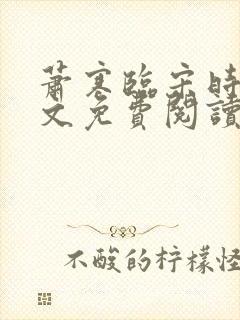 萧寒临宋时
文免费閱讀
不酸的柠檬怪